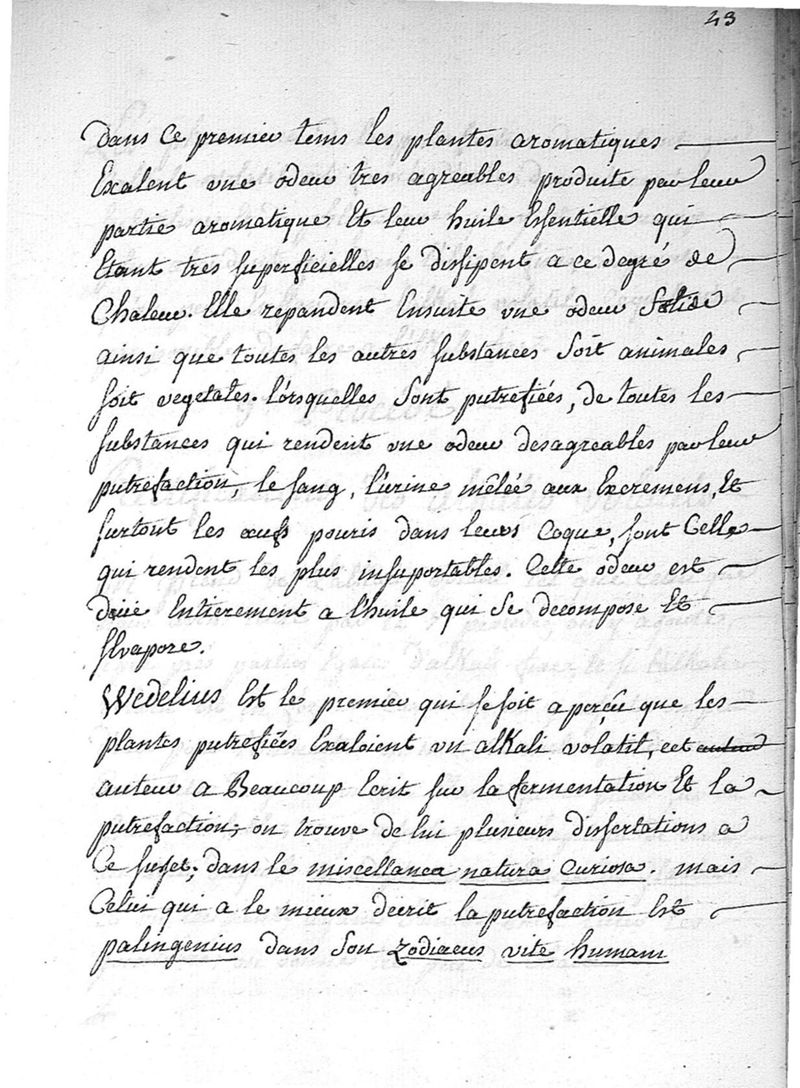 43
Dans Ce premier tems les plantes aromatiques
Exalent une odeur tres agreables produite par leur
partie aromatique Et leur huile Essentielle qui
Etant tres superficielles se dissipent a ce degré de
Chaleur. Elle repandent Ensuite une odeur fetide
ainsi que toutes les autres substances soit animales
soit vegetales. lorsquelles sont putrefiées, de toutes les
substances qui rendent une odeur desagreables par leur
putrefaction, le sang, l'urine mêlée aux Excremens, Et
surtout les œufs pouris dans leurs Coque, sont Celle
qui rendent les plus insuportables. Cette odeur est
düe Entierement a l'huile qui se decompose Et
sEvapore.
Wedelius Est le premier qui se soit aperçû que les
plantes putrefiées Exaloient un alKali volatil, cet auteur
auteur a Beaucoup Ecrit sur la fermentation Et la
putrefaction; on trouve de lui plusieurs dissertations a
Ce sujet; dans le miscellanea natura Curiosa. mais
Celui qui a le mieux décrit la putrefaction Est
palingenius dans son zodiacus vite humani